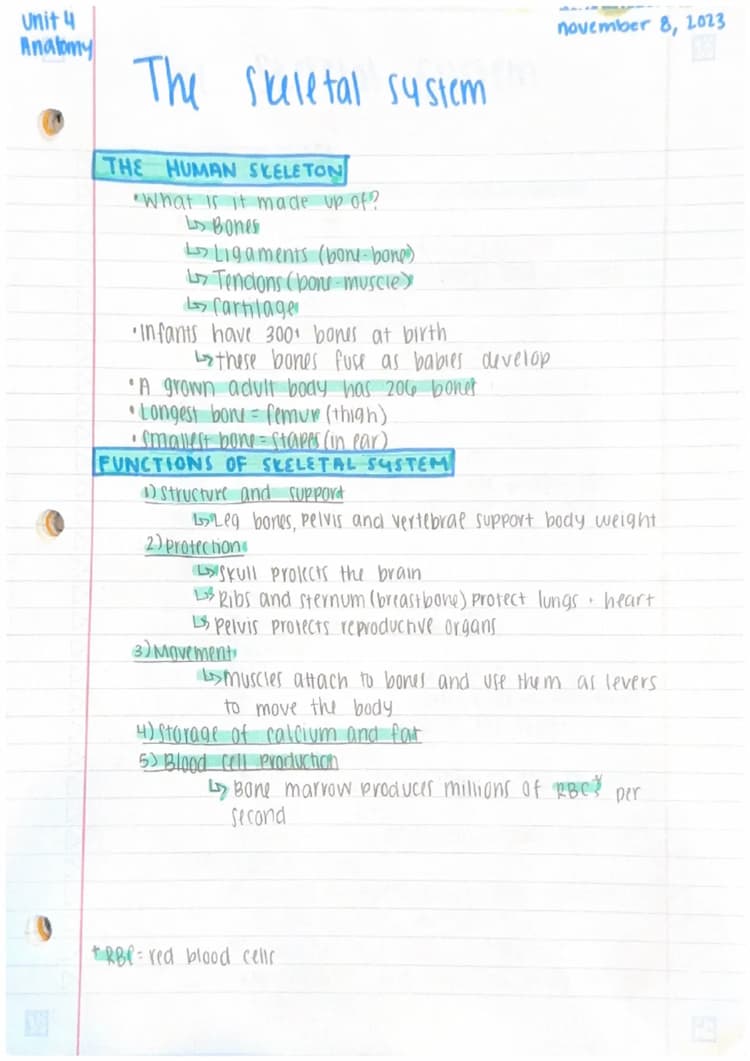 Unit 4
Anatomy
november 8, 2023
The skeletal system
THE HUMAN SKELETON
• What is it made up of?
↳ Bones
↳ Ligaments (bone-bone)
↳ Tendons (bone-muscle)
↳ Cartilage
• Infants have 300+ bones at birth
↳ these bones fuse as babies develop
• A grown adult body has 206 bones
• Longest bone = femur (thigh)
• Smallest bone = stapes (in ear)
FUNCTIONS OF SKELETAL SYSTEM
1) Structure and support
↳ Leg bones, pelvis and vertebrae support body weight
2) Protection
↳ Skull protects the brain
↳ Ribs and sternum (breastbone) protect lungs + heart
↳ Pelvis protects reproductive organs
3) Movement
↳ Muscles attach to bones and use them as levers
to move the body
4) Storage of calcium and fat
5) Blood cell production
↳ Bone marrow produces millions of RBC* per
second
* RBC = red blood cells